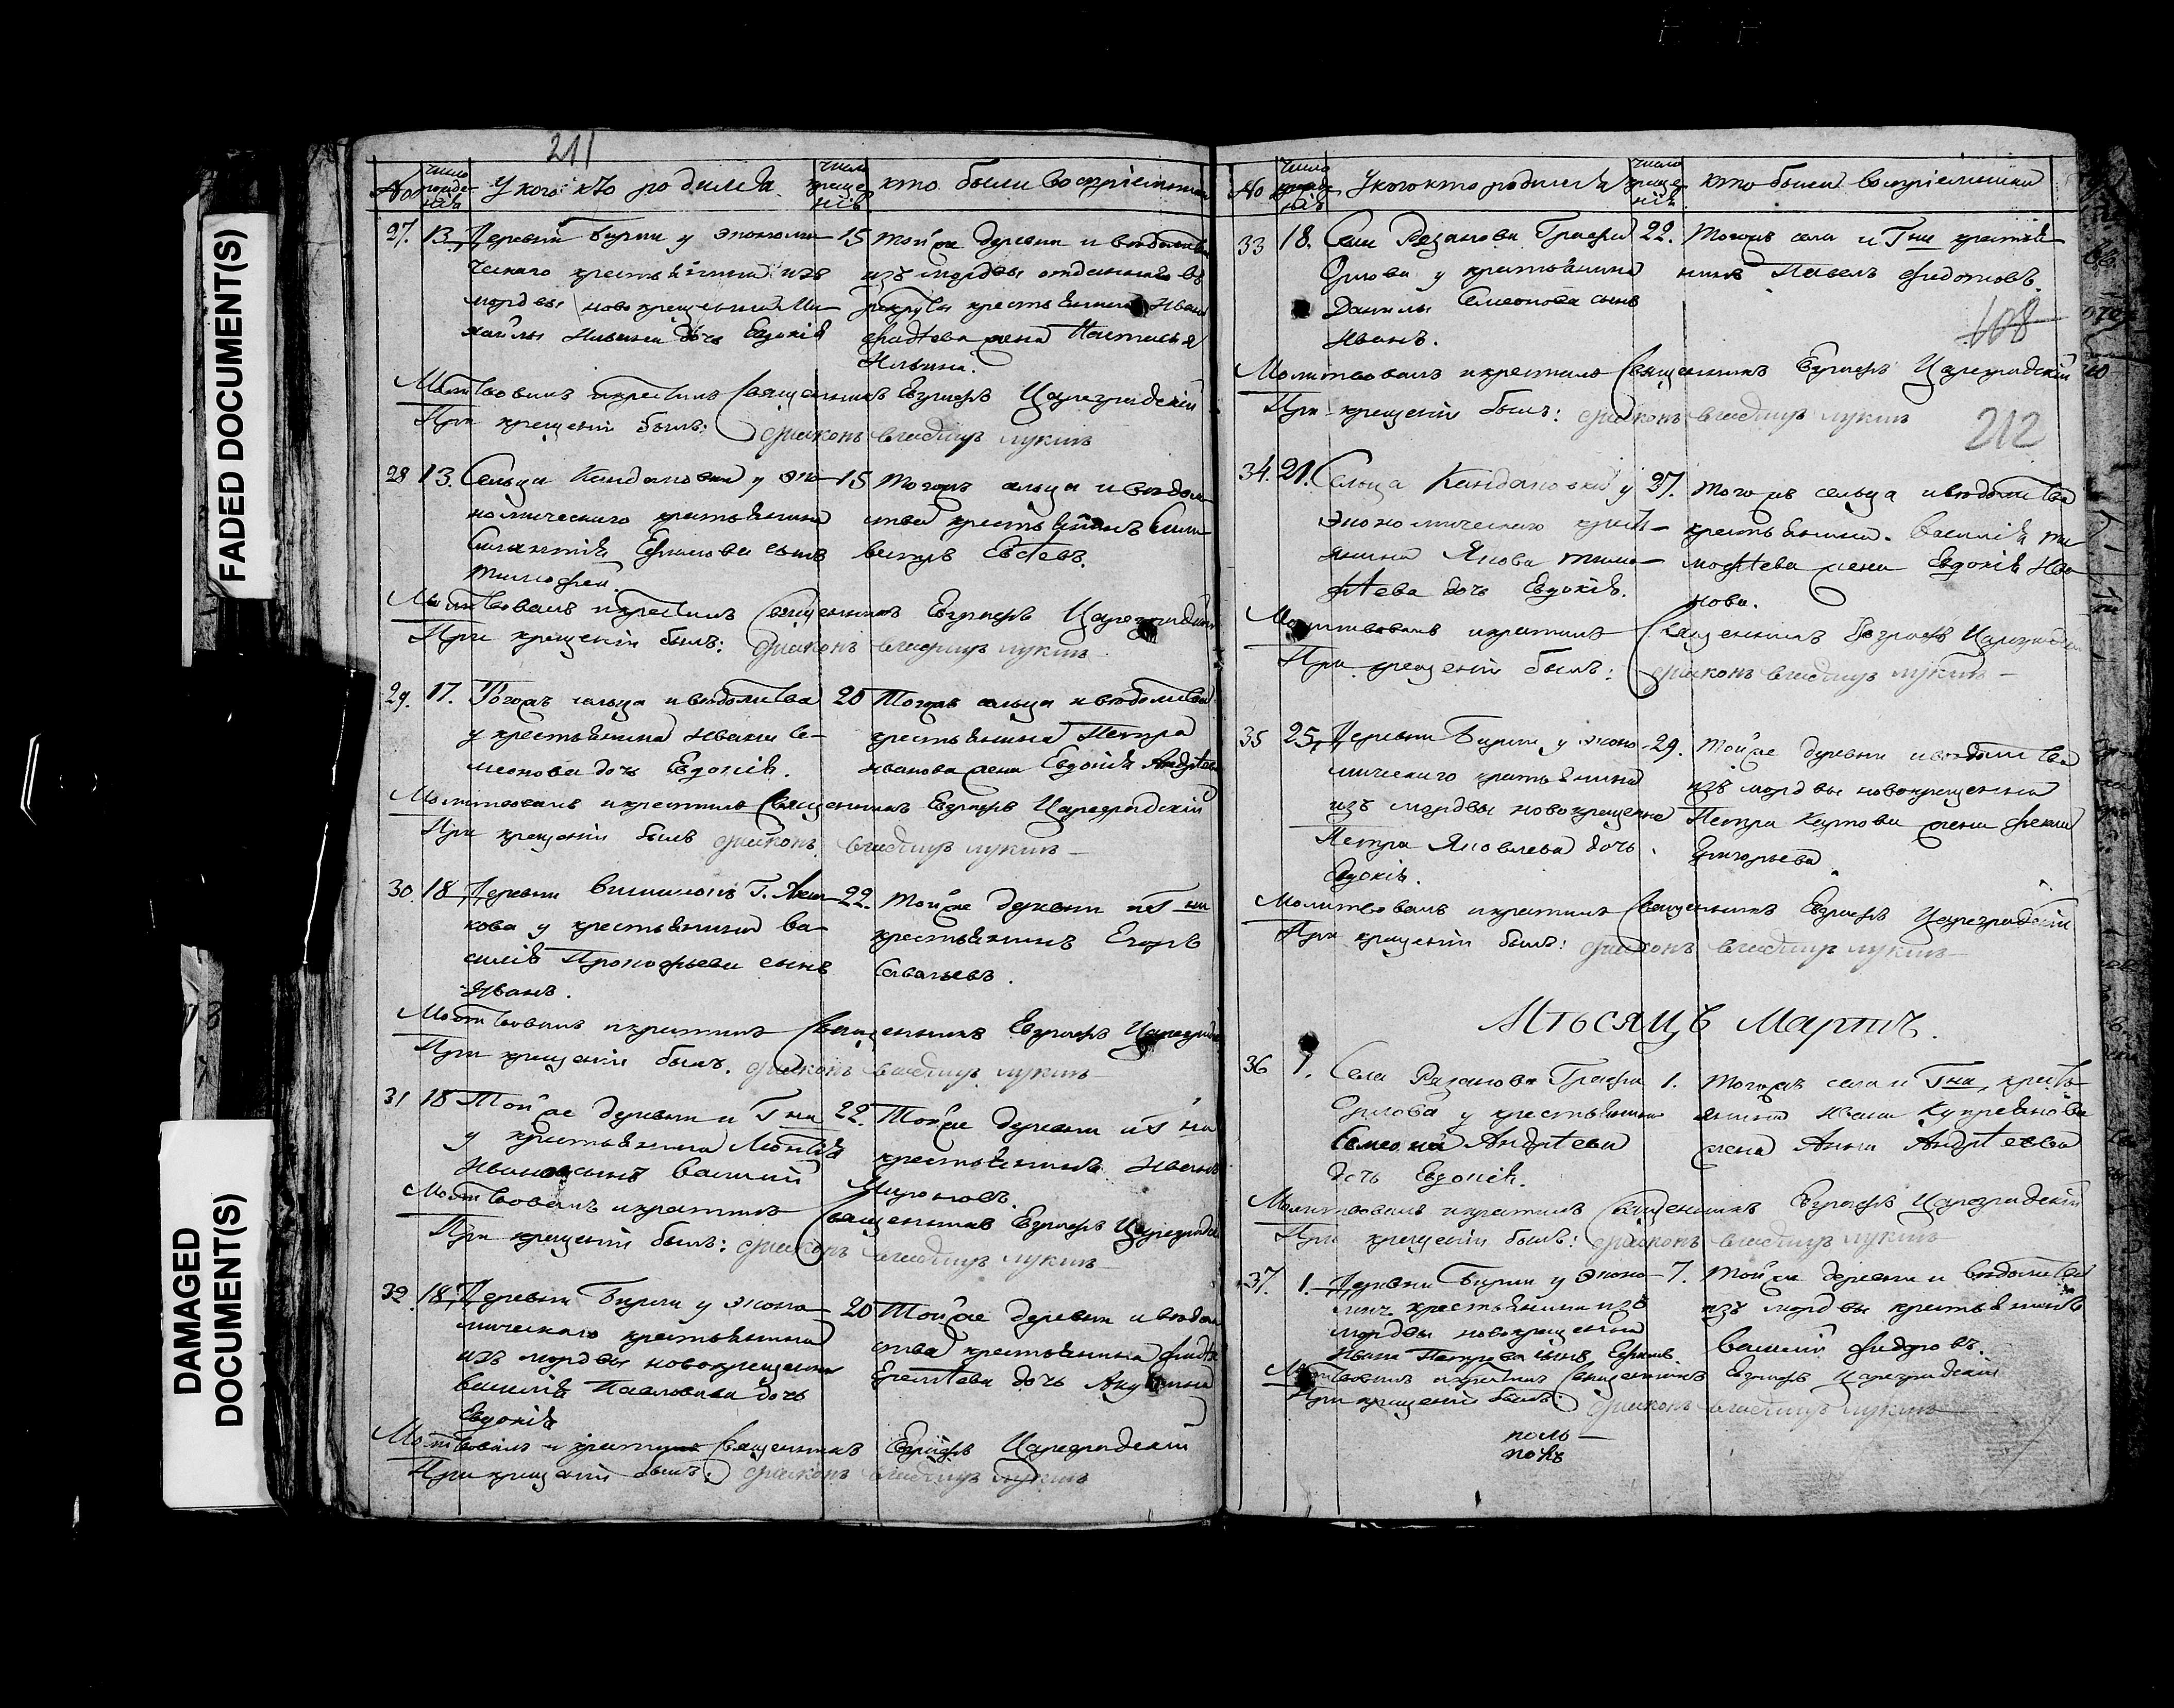 FADED DOCUMENT(S)
DAMAGED
DOCUMENT(S)
211
№
число рожде-
нія
У кого кто родился
число
креще-
нія
кто были воспріемники
27. 13. Деревни Бирли у экономи-
ческаго крестьянина изъ
мордвы новокрещенна Ми-
хайлы Ильина дочь Евдокія
15 Той же деревни и вѣдомства
изъ мордвы отданнаго въ
рекруты крестьянина Ивана
Фадѣева жена Настасья
Ильина.
Молитвовалъ и крестилъ Священникъ Евграфъ Цареградскій
При крещеніи былъ: дьяконъ Владимиръ Лукинъ
28 13. Сельца Кандаковки у эко-
номическаго крестьянина
Ефимова сынъ
Тимофей.
15 Того жъ сельца и вѣдом-
ства крестьянинъ Сили-
верстъ Евсѣевъ.
Молитвовалъ и крестилъ Священникъ Евграфъ Цареградскій
При крещеніи былъ: дьяконъ Владимиръ Лукинъ
29. 17. Того жъ сельца и вѣдомства
у крестьянина Ивана Се-
меонова дочь Евдокія.
20 Того жъ сельца и вѣдомства
крестьянина Петра
Иванова жена Евдокія Андрѣева
Молитвовалъ и крестилъ Священникъ Евграфъ Цареградскій
При крещеніи былъ дьяконъ Владимиръ Лукинъ
30. 18. Деревни Г.
кова у крестьянина Ва-
силія Прокофьева сынъ
Иванъ.
22. Той же деревни и Г-на
крестьянинъ Егоръ
Савельевъ.
Молитвовалъ и крестилъ Священникъ Евграфъ Цареградскій
При крещеніи былъ. дьяконъ Владимиръ Лукинъ
31 18 Той же деревни и Г-на
у крестьянина
Иванова сынъ Василій
22. Той же деревни и Г-на
крестьянинъ Иванъ
Мироновъ.
Молитвовалъ и крестилъ Священникъ Евграфъ Цареградскій
При крещеніи былъ: дьяконъ Владимиръ Лукинъ
32. 18. Деревни Бирли у эконо-
мическаго крестьянина
изъ мордвы новокрещенна
Василія Павлова дочь
Евдокія
20 Той же деревни и вѣдом-
ства крестьянина Фадѣя
Еремѣева дочь Акулина
Молитвовалъ и крестилъ Священникъ Евграфъ Цареградскій
При крещеніи былъ: дьяконъ Владимиръ Лукинъ
№
число
рожде-
нія
У кого кто родился
число
креще-
нія
кто были воспріемники
33 18. Села Рязанова Графа
Орлова у крестьянина
Данилы Семеонова сынъ
Иванъ.
22. Того жъ села и Г-на крестья-
нинъ Павелъ Федотовъ.
108
Молитвовалъ и крестилъ Священникъ Евграфъ Цареградскій
При крещеніи былъ: дьяконъ Владимиръ Лукинъ
212
34. 21. Сельца Кандаковки у
экономическаго кресть-
янина Якова Тимо-
фѣева дочь Евдокія.
27. Того жъ сельца и вѣдомства
крестьянина Василія Ти-
мофѣева жена Евдокія Ива-
нова.
Молитвовалъ и крестилъ Священникъ Евграфъ Цареградскій
При крещеніи былъ: дьяконъ Владимиръ Лукинъ
35 25. Деревни Бирли у эконо-
мическаго крестьянина
изъ мордвы новокрещенна
Петра Яковлева дочь
Евдокія.
29. Той же деревни и вѣдомства
изъ мордвы новокрещенна
Петра Карпова жена Фекла
Григорьева.
Молитвовалъ и крестилъ Священникъ Евграфъ Цареградскій
При крещеніи былъ: дьяконъ Владимиръ Лукинъ
Мѣсяцъ Мартъ.
36 1. Села Рязанова Графа
Орлова у крестьянина
Семеона Андрѣева
дочь Евдокія.
1. Того жъ села и Г-на кресть-
янина Ивана Купреянова
жена Анна Андрѣева
Молитвовалъ и крестилъ Священникъ Евграфъ Цареградскій
При крещеніи былъ: дьяконъ Владимиръ Лукинъ
37. 1. Деревни Бирли у эконо-
мич. крестьянина изъ
мордвы новокрещенна
Ивана Петрова сынъ Ефимъ.
7. Той же деревни и вѣдомства
изъ мордвы крестьянинъ
Василій Федоровъ.
Молитвовалъ и крестилъ Священникъ Евграфъ Цареградскій
При крещеніи былъ: дьяконъ Владимиръ Лукинъ